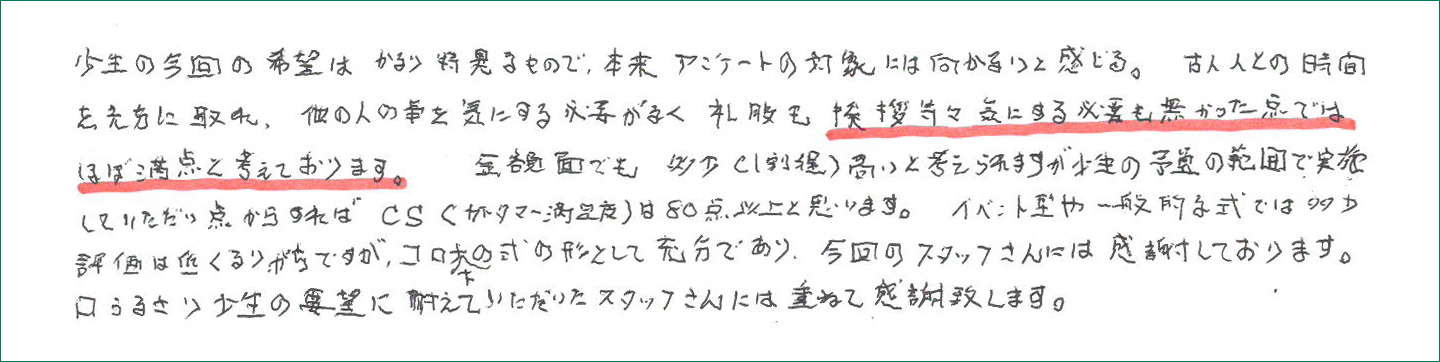 少生の今回の希望は かなり特異なもので、本来 アンケートの対象には向かないと感じる。 故人との時間
を充分に取れ、他の人の事を気にする必要がなく 礼服も 挨拶等々気にする必要も無かった点では
ほぼ満点と考えております。 金額面でも 多少(1割程)高いと考えられますが少生の予算の範囲で実施
していただい点からすれば CS(カスタマー満足度)は80点以上と思います。 イベント型や一般的な式では多少
評価は低くなりがちですが、コロナ禍の式の形として充分であり、今回のスタッフさんには感謝しております。
口うるさい少生の要望に耐えていただいたスタッフさんには重ねて感謝致します。